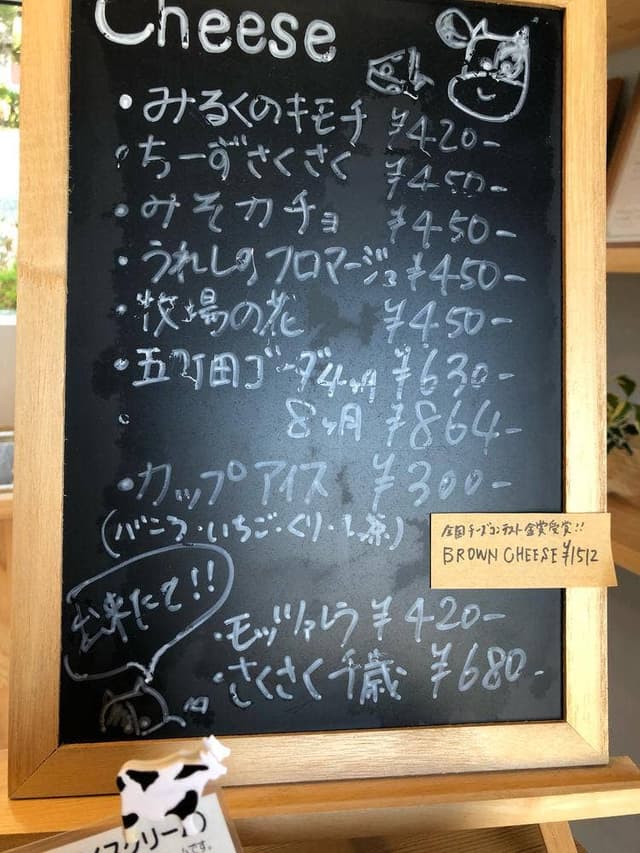 Cheese
・みるくのキモチ ¥420-
・ちーずさくさく ¥450-
・みそカチョ ¥450-
・うれしのフロマージュ ¥450-
・牧場の花 ¥450-
・五町田ゴーダ4ヶ月 ¥630-
・ 8ヶ月 ¥864-
・カップアイス ¥300-
(バニラ・いちご・くり・し茶)
全国チーズコンテスト金賞受賞!!
BROWN CHEESE ¥1512
出来たて!!
・モッツァレラ ¥420-
・さくさく千歳 ¥680-